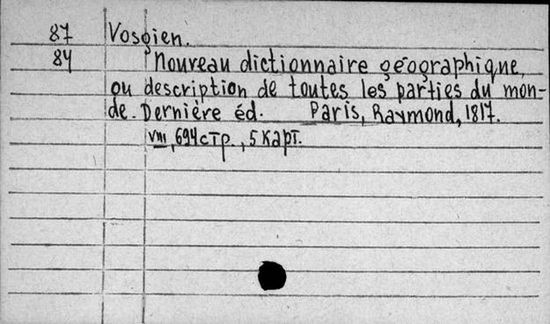 87 Vosgien.
84 Nouveau dictionnaire géographique,
ou description de toutes les parties du mon-
de. Dernière éd. Paris, Raymond, 1817.
VIII, 694 стр., 5 карт.